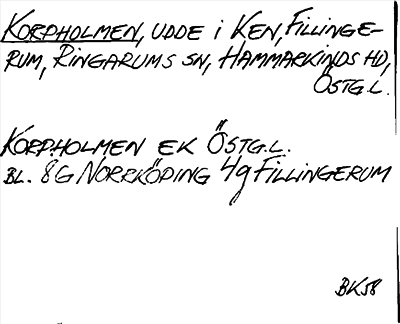 KORPHOLMEN, UDDE i KEN, FILLINGE-
RUM, RINGARUMS SN, HAMMARKINDS HD,
ÖSTG.L.
KORPHOLMEN EK ÖSTG.L.
BL. 8G NORRKÖPING 4g FILLINGERUM
BK58